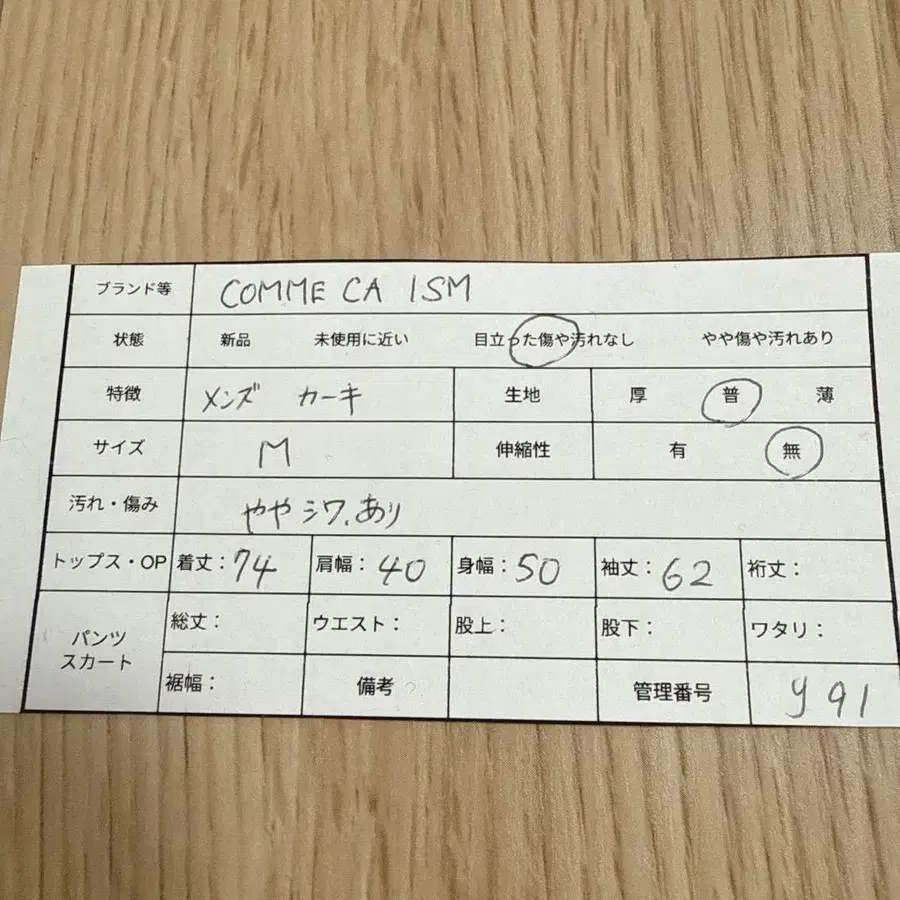 ブランド等 COMME CA ISM
状態 新品 未使用に近い 目立った傷や汚れなし やや傷や汚れあり
特徴 メンズ カーキ 生地 厚 普 薄
サイズ M 伸縮性 有 無
汚れ・傷み ややシワ、あり
トップス・OP 着丈：74 肩幅：40 身幅：50 袖丈：62 裄丈：
パンツ スカート 総丈： ウエスト： 股上： 股下： ワタリ：
裾幅： 備考 管理番号 y 91